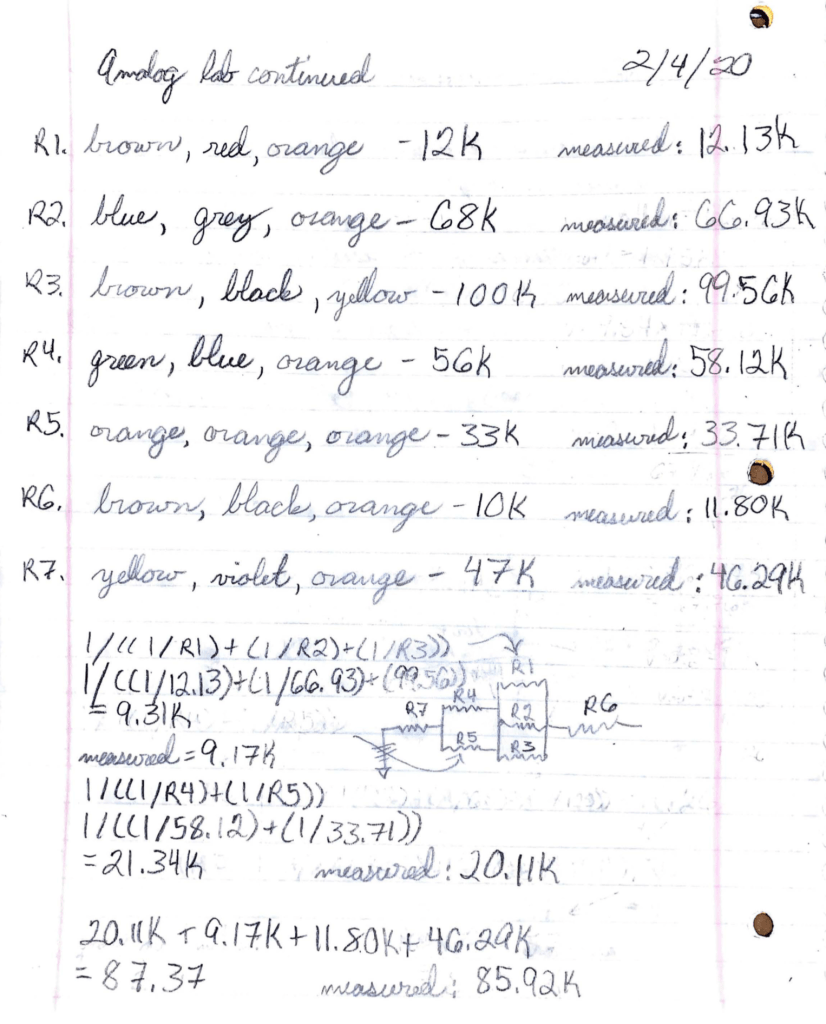 Analog lab continued 2/4/20
R1. brown, red, orange - 12K measured: 12.13K
R2. blue, grey, orange - 68K measured: 66.93K
R3. brown, black, yellow - 100K measured: 99.56K
R4. green, blue, orange - 56K measured: 58.12K
R5. orange, orange, orange - 33K measured: 33.71K
R6. brown, black, orange - 10K measured: 11.80K
R7. yellow, violet, orange - 47K measured: 46.29K
1/((1/R1)+(1/R2)+(1/R3))
1/((1/12.13)+(1/66.93)+(99.56))
= 9.31K
R1
R4
R7
R2
R6
R5
R3
measured = 9.17K
1/((1/R4)+(1/R5))
1/((1/58.12)+(1/33.71))
= 21.34K measured: 20.11K
20.11K + 9.17K + 11.80K + 46.29K
= 87.37 measured: 85.92K